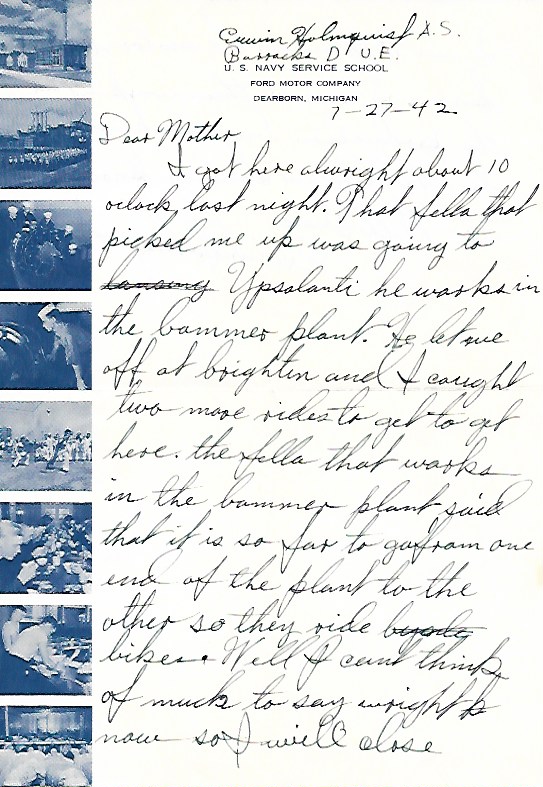 Erwin Holmquist A.S.
Barracks D U.E.
U. S. NAVY SERVICE SCHOOL
FORD MOTOR COMPANY
DEARBORN, MICHIGAN
7-27-42
Dear Mother
I got here alwright about 10
oclock last night. That fella that
picked me up was going to
lansing Ypsalanti he warks in
the bammer plant. He let me
off at brighten and I caught
two more rides to get to get
here. the fella that warks
in the bammer plant said
that it is so far to go from one
end of the plant to the
other so they ride bycycles
bikes. Well I cant think
of much to say wright
now so I will close